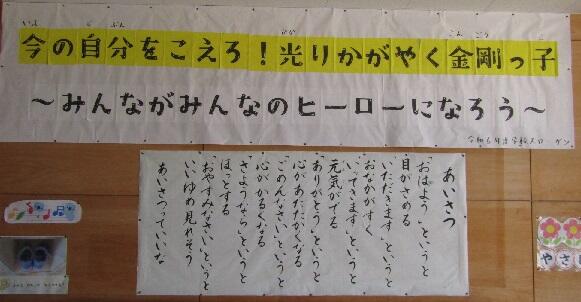 今の自分をこえろ！光りかがやく金剛っ子
～みんながみんなのヒーローになろう～
あいさつ
「おはよう」というと
目がさめる
「いただきます」というと
おなかがすく
「いってきます」というと
元気がでる
「ありがとう」というと
心があたたかくなる
「ごめんなさい」というと
心がかるくなる
「さようなら」というと
ほっとする
「おやすみなさい」というと
いいゆめ見れそう
あいさつっていいな